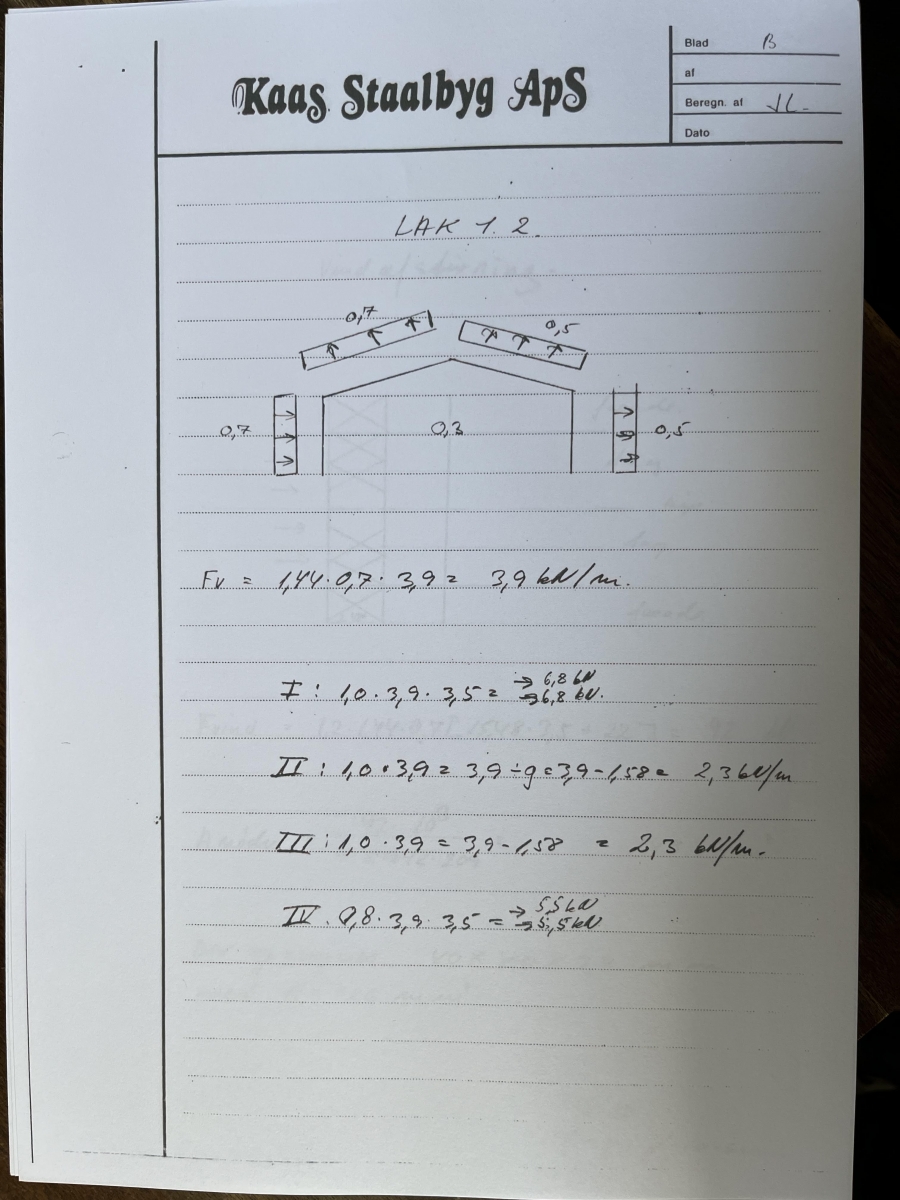 Blad B
af
Kaas Staalbyg ApS
Beregn. af JL-
Dato
LAK 1.2.
0,7
0,5
0,7
0,3
0,5
Fv = 1,44 · 0,7 · 3,9 = 3,9 kN/m.
→ 6,8 kN
I : 1,0 · 3,9 · 3,5 = → 6,8 kN.
II : 1,0 · 3,9 = 3,9 ÷ g = 3,9 - 1,58 = 2,3 kN/m
III : 1,0 · 3,9 = 3,9 - 1,58 = 2,3 kN/m.
→ 5,5 kN
IV . 0,8 · 3,9 · 3,5 = → 5,5 kN